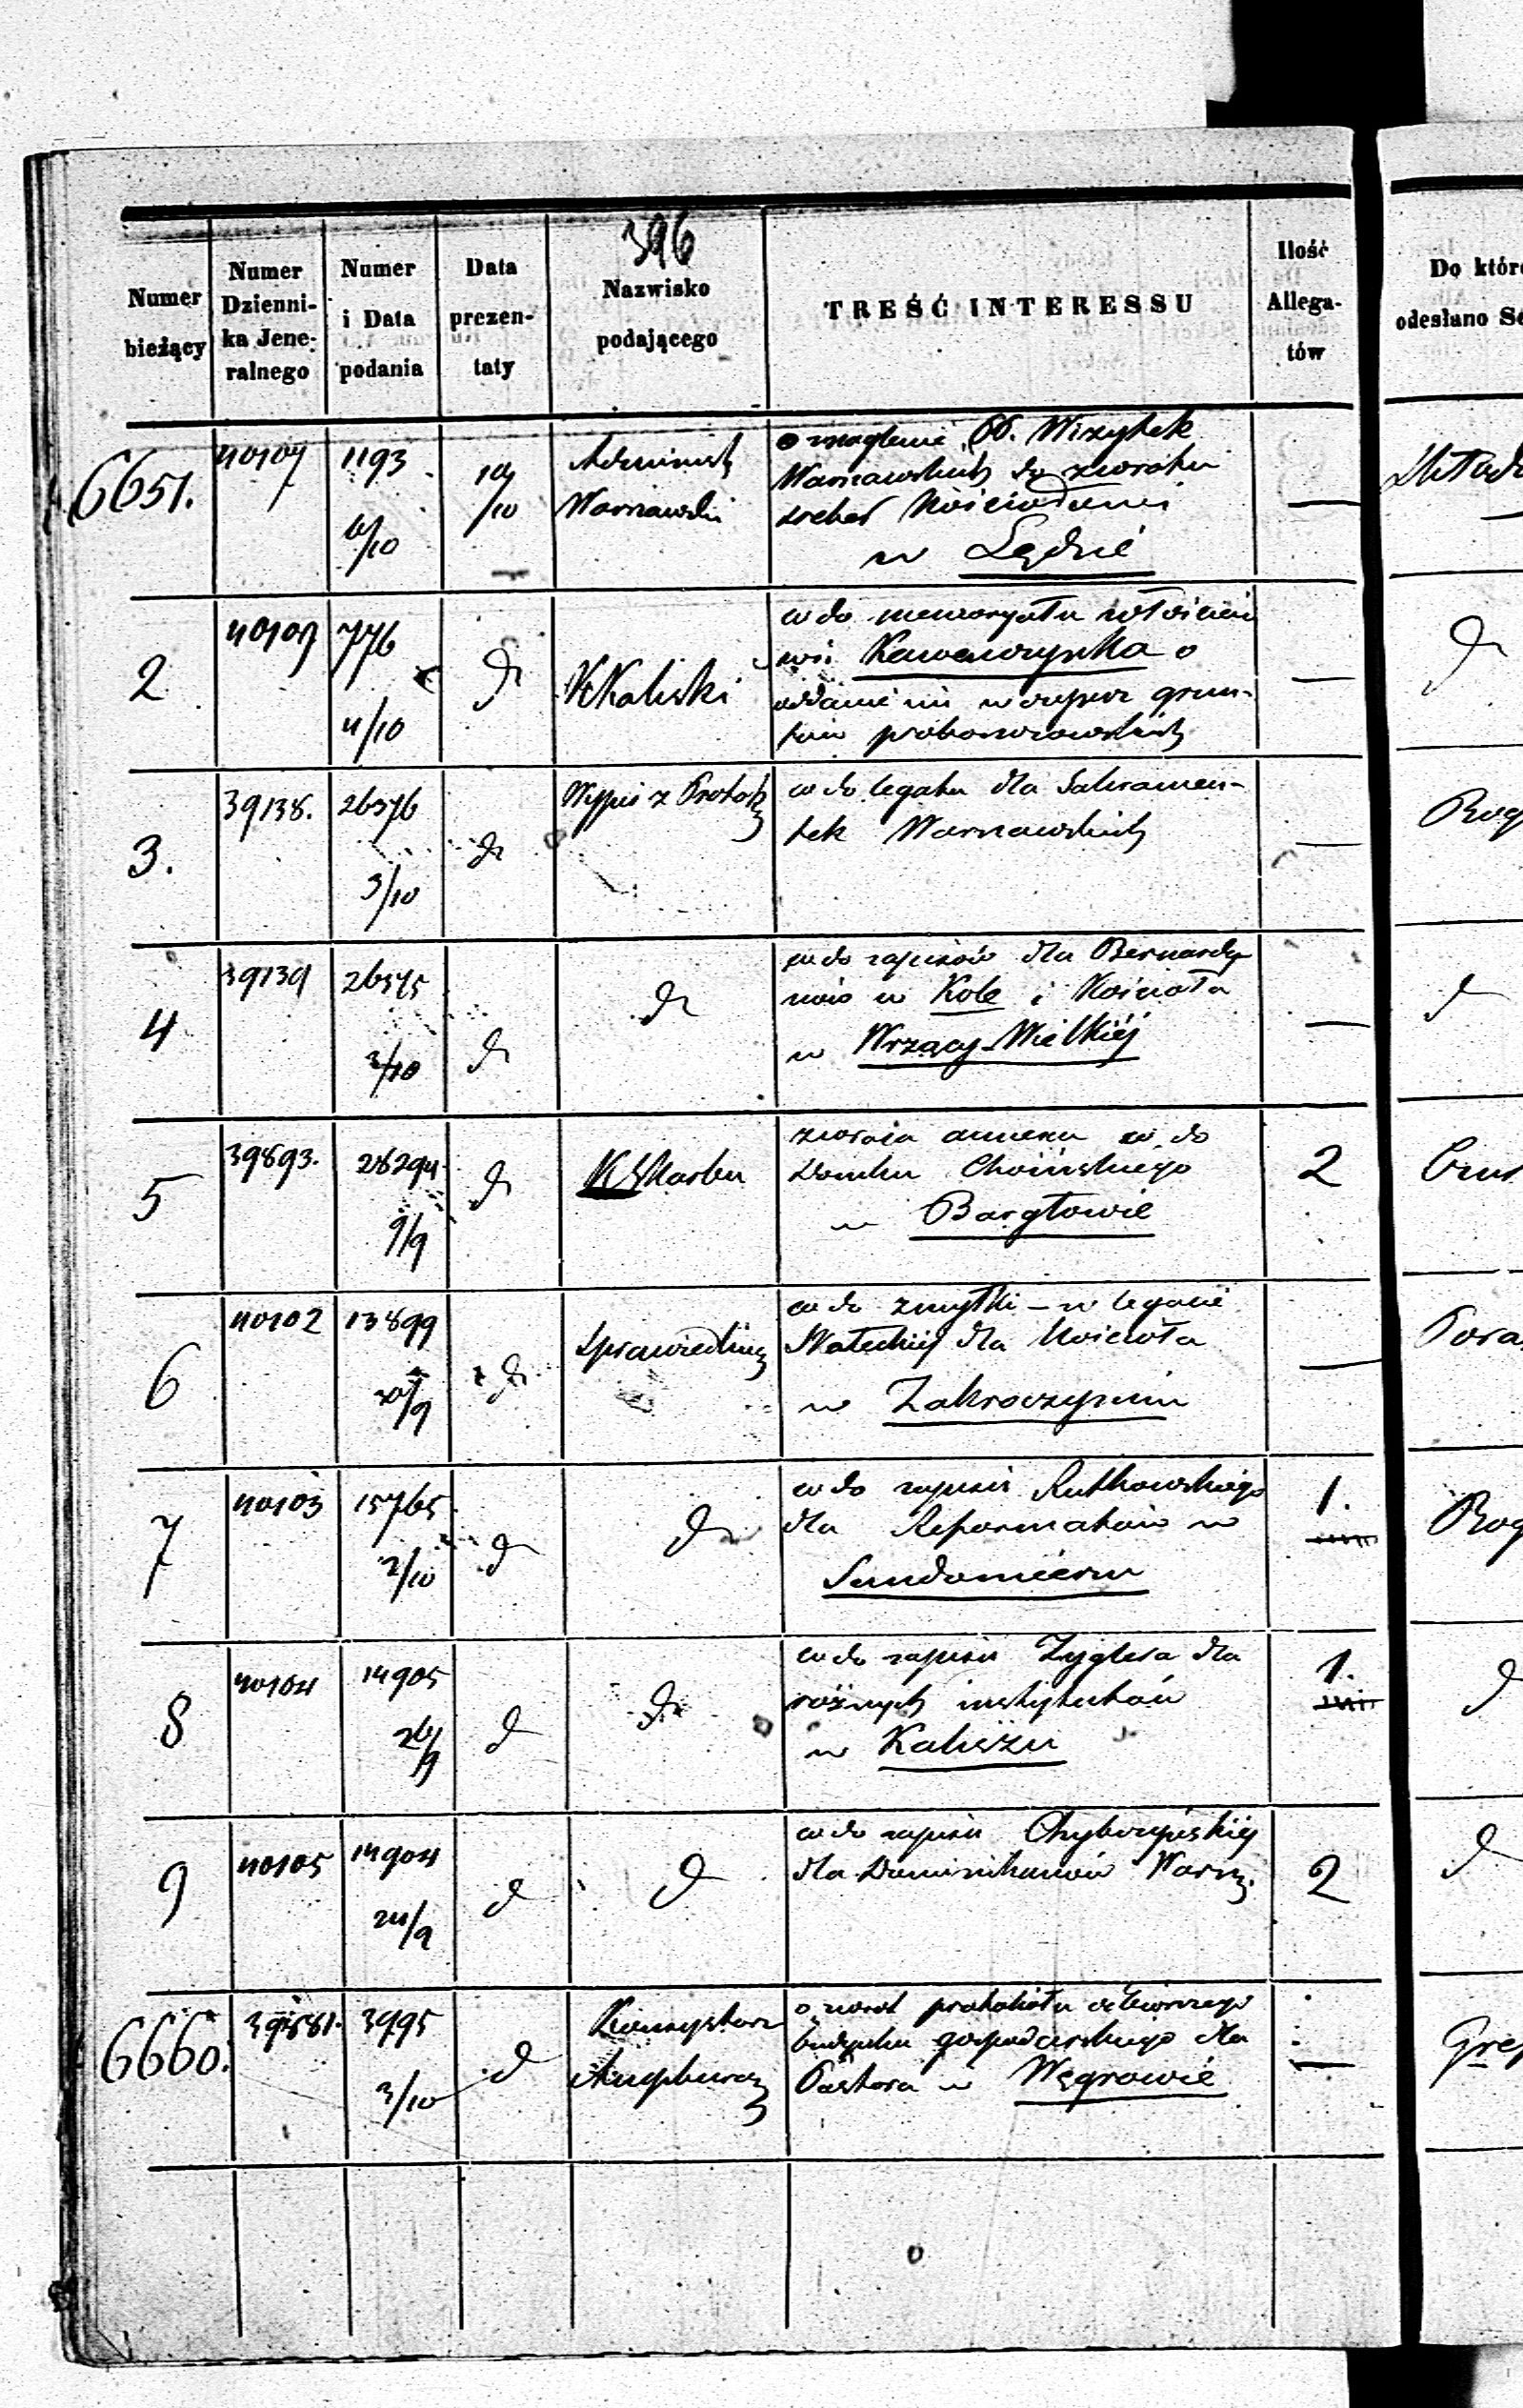 396
Numer bieżący
Numer Dzienni-ka Jene-ralnego
Numer i Data podania
Data prezen-taty
Nazwisko podającego
TREŚĆ INTERESSU
Ilość Allega-tów
Do które
odesłano Se
6651. 40107 1193 10/10
Warszawski
o naglenie PP. Wizytek
Warszawskich do zwrotu
sreber Kościołowi
w Lędzie
2 40109 776 11/10 d
K Kaliski
co do memoryału włościan
wsi Kawenczynka o
oddanie im w czynsz grun-
tów probostwowskich
d
3. 39138. 26576 3/10 d
Wypis z Protok
co do legatu dla Sakramen-
tek Warszawskich
Rog
4 39139 26575 3/10 d d
co do zapisów dla Bernardy-
nów w Kole i Kościoła
w Wrzący-Wielkiéj
d
5 39893. 28294 9/9 d
K Skarbu
zwraca annexa co do
Domku Choińskiego
w Bargłowie
2
6 40102 13899 20/9 d
Sprawiedliwoś
co do zmyłki - w legacie
dla Kościoła
w Zakroczymiu
7 40103 15765 2/10 d d
co do zapisu Rutkowskiego
dla Reformatów w
Sandomierzu
1.
Rog
8 40104 14905 26/9 d d
co do zapisu Zyglera dla
różnych instytutów
w Kaliszu
1.
d
9 40105 14904 24/9 d d
co do zapisu Chybczyńskiéj
dla Dominikanów Warsz.
2
d
6660. 39881. 3995 3/10 d
Konsystorz
Augsburg
o zwrot protokółu odbiorczego
budynku gospodarskiego dla
Pastora w Węgrowie